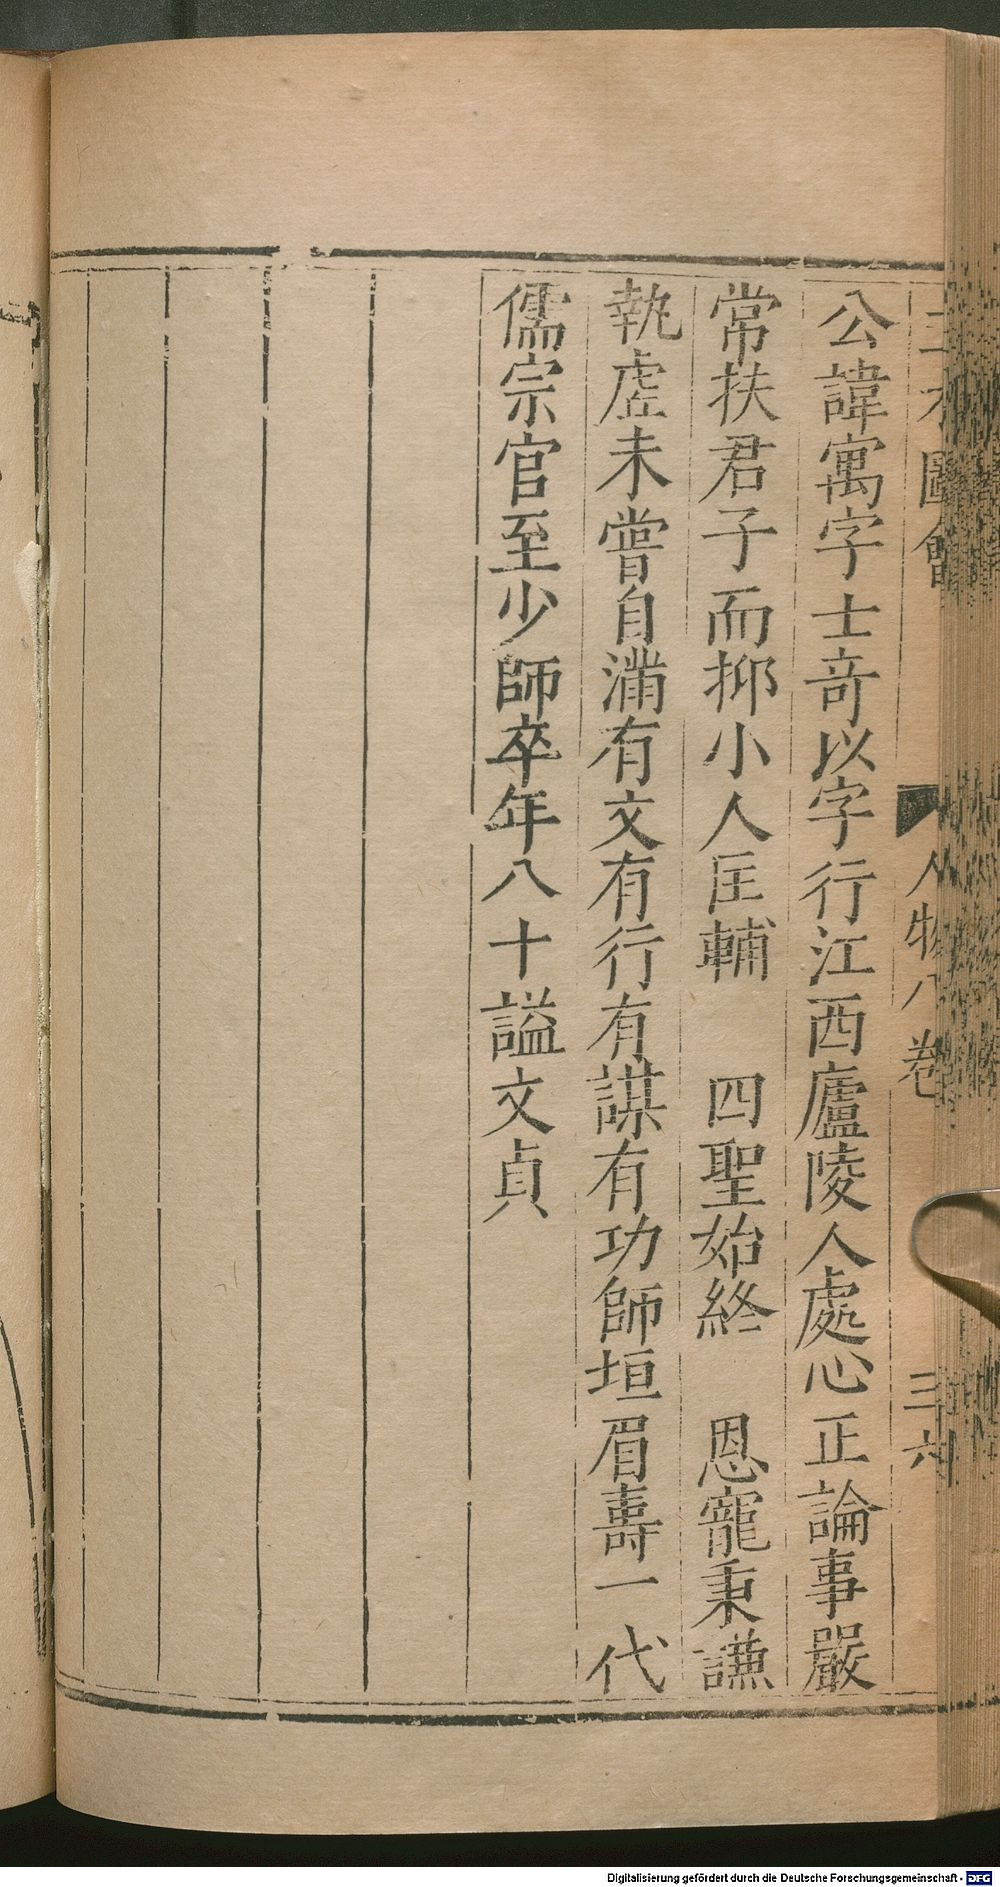 三才圖會 人物八卷 三六
公諱寓字士竒以字行江西廬陵人處心正論事嚴
常扶君子而抑小人匡輔　四聖始終　恩寵秉謙
執虗未嘗自滿有文有行有謀有功師垣眉壽一代
儒宗官至少師卒年八十謚文貞
Digitalisierung gefördert durch die Deutsche Forschungsgemeinschaft - DFG